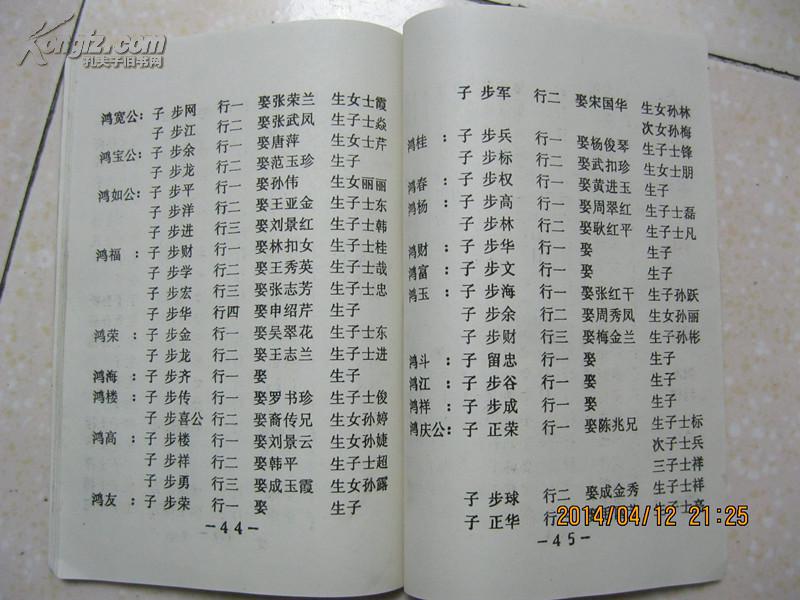 Kongfz.com
孔夫子旧书网
鸿宽公：子 步网 行一 娶张荣兰 生女士霞
子 步江 行二 娶张武凤 生子士焱
鸿宝公：子 步余 行一 娶唐萍 生女士芹
子 步龙 行二 娶范玉珍 生子
鸿如公：子 步平 行一 娶孙伟 生女丽丽
子 步洋 行二 娶王亚金 生子士东
子 步进 行三 娶刘景红 生子士韩
鸿福 ：子 步财 行一 娶林扣女 生子士桂
子 步学 行二 娶王秀英 生子士哉
子 步宏 行三 娶张志芳 生子士忠
子 步华 行四 娶申绍芹 生子
鸿荣 ：子 步金 行一 娶吴翠花 生子士东
子 步龙 行二 娶王志兰 生子士进
鸿海 ：子 步齐 行一 娶 生子
鸿楼 ：子 步传 行一 娶罗书珍 生子士俊
子 步喜公 行二 娶裔传兄 生女孙婷
鸿高 ：子 步楼 行一 娶刘景云 生女孙婕
子 步祥 行二 娶韩平 生子士超
子 步勇 行三 娶成玉霞 生女孙露
鸿友 ：子 步荣 行一 娶 生子
-44-
子 步军 行二 娶宋国华 生女孙林
次女孙梅
鸿桂 ：子 步兵 行一 娶杨俊琴 生子士锋
子 步标 行二 娶武扣珍 生女士朋
鸿春 ：子 步权 行一 娶黄进玉 生子
鸿杨 ：子 步高 行一 娶周翠红 生子士磊
子 步林 行二 娶耿红平 生子士凡
鸿财 ：子 步华 行一 娶 生子
鸿富 ：子 步文 行一 娶 生子
鸿玉 ：子 步海 行一 娶张红干 生子孙跃
子 步余 行二 娶周秀凤 生女孙丽
子 步财 行三 娶梅金兰 生子孙彬
鸿斗 ：子 留忠 行一 娶 生子
鸿江 ：子 步谷 行一 娶 生子
鸿祥 ：子 步成 行一 娶 生子
鸿庆公：子 正荣 行一 娶陈兆兄 生子士标
次子士兵
三子士祥
子 步球 行二 娶成金秀 生子士祥
子 正华 行 生子士亮
2014/04/12 21:25
-45-